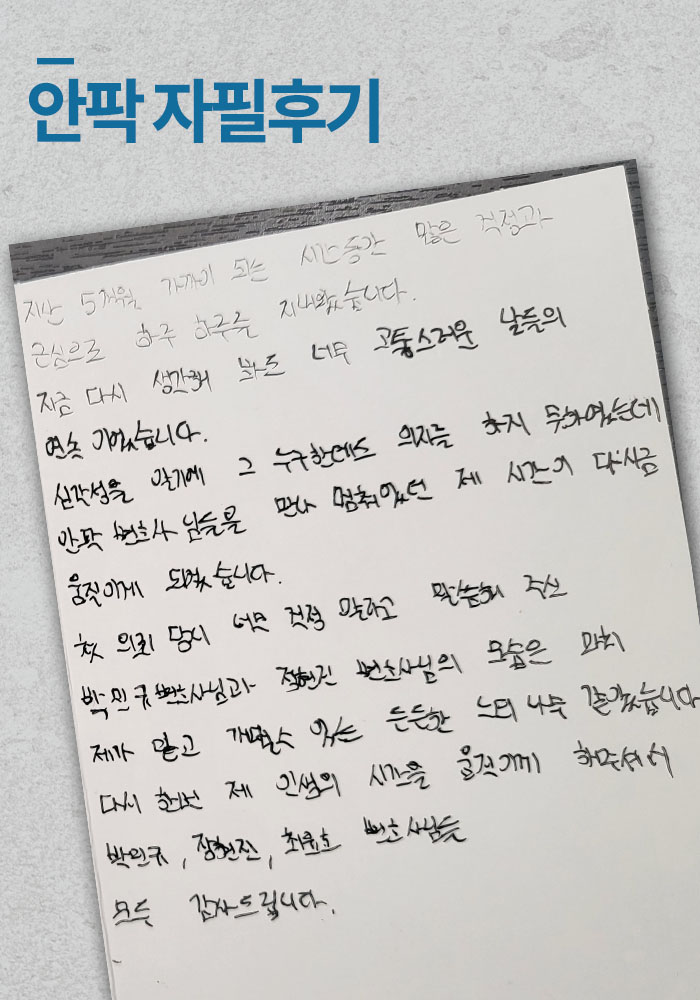 안팍 자필후기
지난 5개월 가까이 되는 시간동안 많은 걱정과
근심으로 하루 하루를 지내왔습니다.
지금 다시 생각해 봐도 너무 고통스러운 날들의
연속 이었습니다.
심각성을 알기에 그 누구한테도 의지를 하지 못하였는데
안팍 변호사님들을 만나 멈춰있던 제 시간이 다시금
움직이게 되었습니다.
첫 의뢰 당시 너무 걱정 말라고 말씀해 주신
박민규변호사님과 장현진 변호사님의 모습은 마치
제가 믿고 기댈수 있는 든든한 느티나무 같았습니다
다시 한번 제 인생의 시간을 움직이게 해주셔서
박민규, 장현진, 최윤호 변호사님들
모두 감사드립니다.